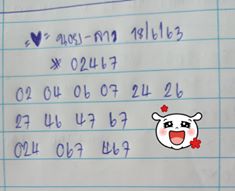 นอย-ลาว 18/6/63
* 02467
02 04 06 07 24 26
27 46 47 67
024 067 467